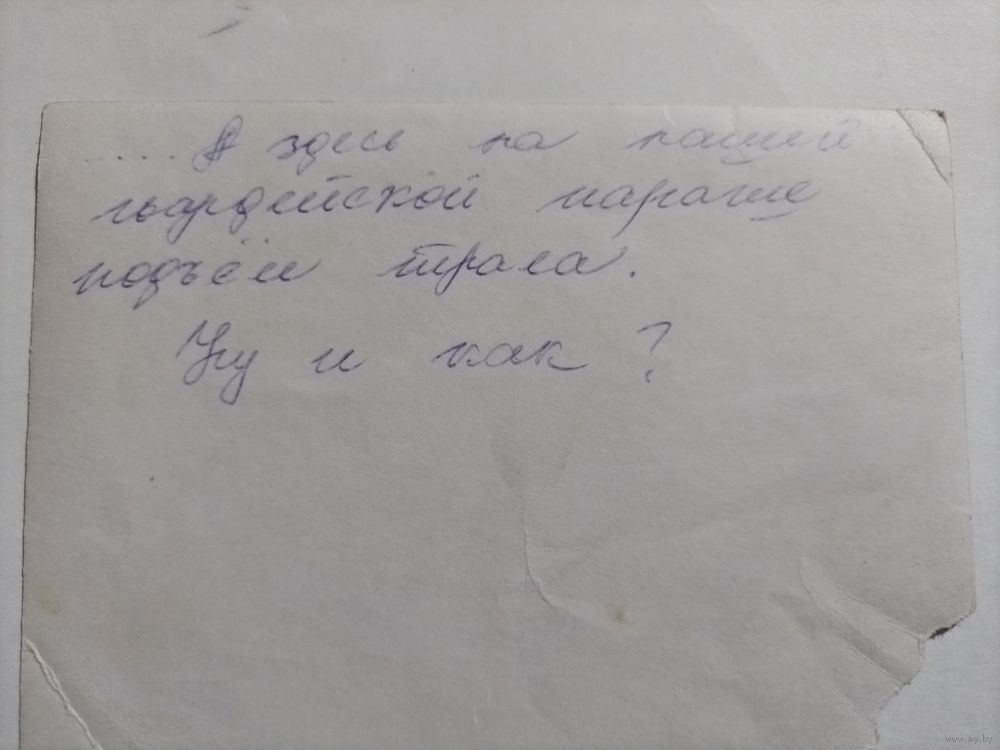 ..... А здесь на нашей
гвардейской параше
подъём трала.
Ну и как?
www.ay.by